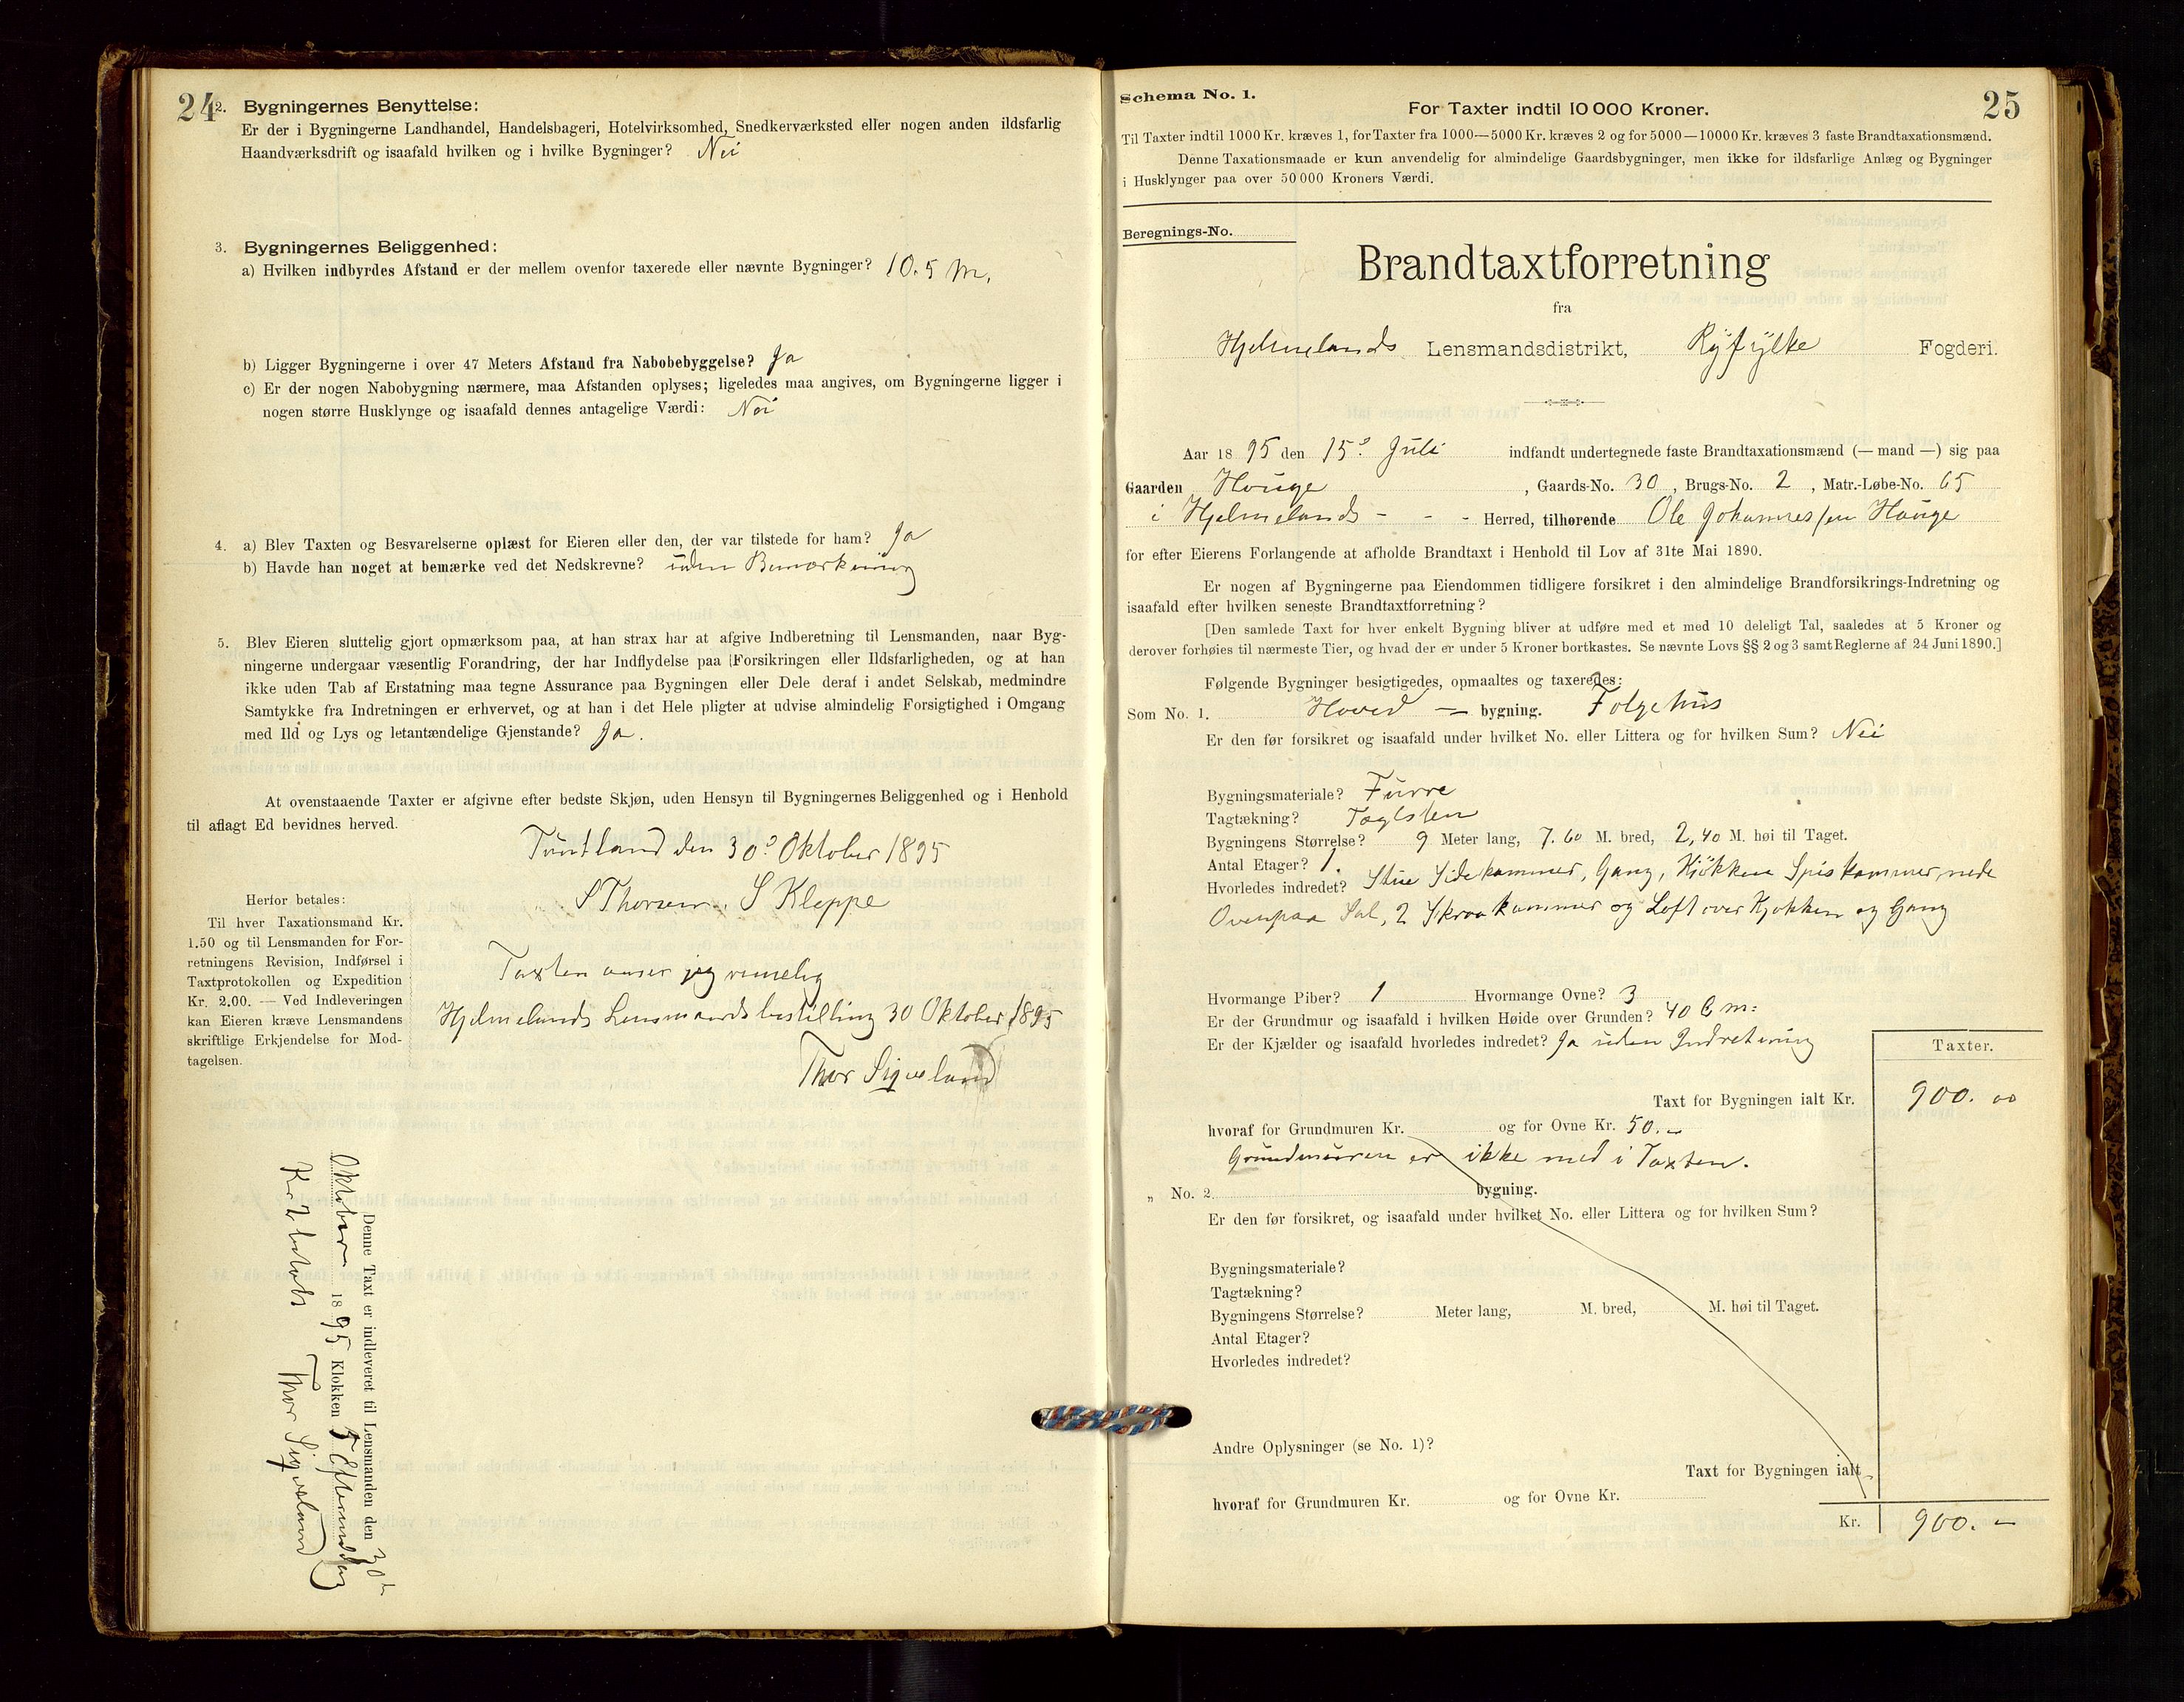 24
2. Bygningernes Benyttelse:
Er der i Bygningerne Landhandel, Handelsbageri, Hotelvirksomhed, Snedkerværksted eller nogen anden ildsfarlig
Haandværksdrift og isaafald hvilken og i hvilke Bygninger? Nei
3. Bygningernes Beliggenhed:
a) Hvilken indbyrdes Afstand er der mellem ovenfor taxerede eller nævnte Bygninger? 10.5 m.
b) Ligger Bygningerne i over 47 Meters Afstand fra Nabobebyggelse? Ja
c) Er der nogen Nabobygning nærmere, maa Afstanden oplyses; ligeledes maa angives, om Bygningerne ligger i
nogen større Husklynge og isaafald dennes antagelige Værdi: Nei
4. a) Blev Taxten og Besvarelserne oplæst for Eieren eller den, der var tilstede for ham? Ja
b) Havde han noget at bemærke ved det Nedskrevne? uden Bemærkning
5. Blev Eieren sluttelig gjort opmærksom paa, at han strax har at afgive Indberetning til Lensmanden, naar Byg-
ningerne undergaar væsentlig Forandring, der har Indflydelse paa Forsikringen eller Ildsfarligheden, og at han
ikke uden Tab af Erstatning maa tegne Assurance paa Bygningen eller Dele deraf i andet Selskab, medmindre
Samtykke fra Indretningen er erhvervet, og at han i det Hele pligter at udvise almindelig Forsigtighed i Omgang
med Ild og Lys og letantændelige Gjenstande? Ja.
At ovenstaaende Taxter er afgivne efter bedste Skjøn, uden Hensyn til Bygningernes Beliggenhed og i Henhold
til aflagt Ed bevidnes herved.
Tuntland den 30. Oktober 1895
S Thorsen. S Kleppe
Herfor betales:
Til hver Taxationsmand Kr.
1.50 og til Lensmanden for For-
retningens Revision, Indførsel i
Taxtprotokollen og Expedition
Kr. 2.00. — Ved Indleveringen
kan Eieren kræve Lensmandens
skriftlige Erkjendelse for Mod-
tagelsen.
Taxten anser jeg rimelig
Hjelmelands Lensmandsbestilling 30 Oktober 1895
Thor Sigveland
Denne Taxt er indleveret til Lensmanden den 30te
Oktober 1895 Klokken 5 Eftermiddag
Kr 2 betalt Thor Sigveland
Schema No. 1.
For Taxter indtil 10 000 Kroner.
25
Til Taxter indtil 1000 Kr. kræves 1, for Taxter fra 1000—5000 Kr. kræves 2 og for 5000—10000 Kr. kræves 3 faste Brandtaxationsmænd.
Denne Taxationsmaade er kun anvendelig for almindelige Gaardsbygninger, men ikke for ildsfarlige Anlæg og Bygninger
i Husklynger paa over 50 000 Kroners Værdi.
Beregnings-No.
Brandtaxtforretning
fra
Hjelmelands Lensmandsdistrikt, Ryfylke Fogderi.
Aar 1895 den 15. Juli indfandt undertegnede faste Brandtaxationsmænd (— mand —) sig paa
Gaarden Houge, Gaards-No. 30, Brugs-No. 2, Matr.-Løbe-No. 65
i Hjelmelands - - - Herred, tilhørende Ole Johannessen Houge
for efter Eierens Forlangende at afholde Brandtaxt i Henhold til Lov af 31te Mai 1890.
Er nogen af Bygningerne paa Eiendommen tidligere forsikret i den almindelige Brandforsikrings-Indretning og
isaafald efter hvilken seneste Brandtaxtforretning?
[Den samlede Taxt for hver enkelt Bygning bliver at udføre med et med 10 deleligt Tal, saaledes at 5 Kroner og
derover forhøies til nærmeste Tier, og hvad der er under 5 Kroner bortkastes. Se nævnte Lovs §§ 2 og 3 samt Reglerne af 24 Juni 1890.]
Følgende Bygninger besigtigedes, opmaaltes og taxeredes:
Som No. 1. Hoved — bygning. Folgehus
Er den før forsikret og isaafald under hvilket No. eller Littera og for hvilken Sum? Nei
Bygningsmateriale? Furre
Tagtækning? Taglsten
Bygningens Størrelse? 9 Meter lang, 7.60 M. bred, 2,40 M. høi til Taget.
Antal Etager? 1.
Hvorledes indredet? Stue Sidekammer, Gang, Kjøkken Spiskammer nede
Ovenpaa Sal, 2 Skraakammer og Loft over Kjøkken og Gang
Hvormange Piber? 1 Hvormange Ovne? 3
Er der Grundmur og isaafald i hvilken Høide over Grunden? 40 Cm:
Er der Kjælder og isaafald hvorledes indredet? Ja uden Indretning
Taxter.
Taxt for Bygningen ialt Kr. 900. 00
hvoraf for Grundmuren Kr. og for Ovne Kr. 50.-
Grundmuren er ikke med i Taxten.
„ No. 2 bygning.
Er den før forsikret, og isaafald under hvilket No. eller Littera og for hvilken Sum?
Bygningsmateriale?
Tagtækning?
Bygningens Størrelse? Meter lang, M. bred, M. høi til Taget.
Antal Etager?
Hvorledes indredet?
Andre Oplysninger (se No. 1)?
Taxt for Bygningen ialt
hvoraf for Grundmuren Kr. og for Ovne Kr.
Kr. 900. -